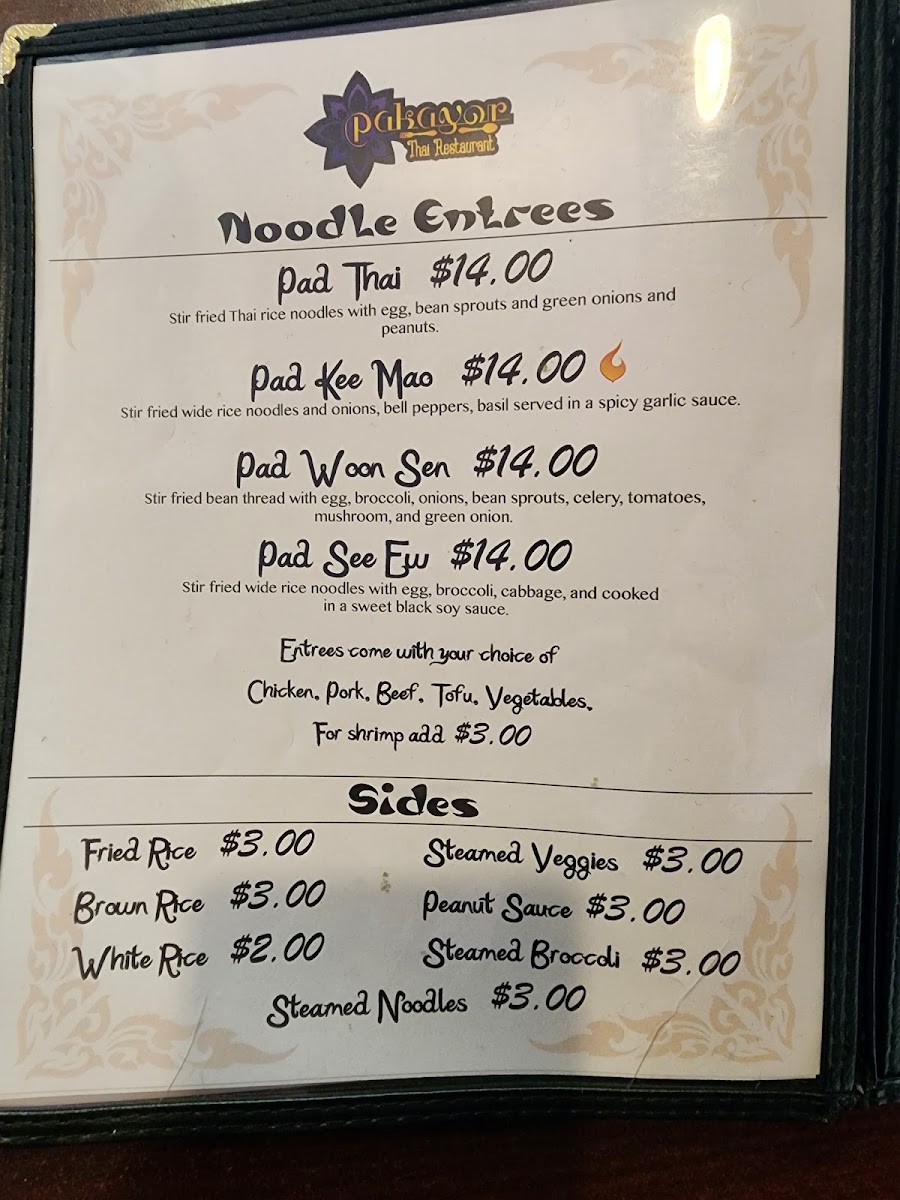 pakayor
Thai Restaurant
Noodle Entrees
Pad Thai $14.00
Stir fried Thai rice noodles with egg, bean sprouts and green onions and
peanuts.
Pad Kee Mao $14.00
Stir fried wide rice noodles and onions, bell peppers, basil served in a spicy garlic sauce.
Pad Woon Sen $14.00
Stir fried bean thread with egg, broccoli, onions, bean sprouts, celery, tomatoes,
mushroom, and green onion.
Pad See Ew $14.00
Stir fried wide rice noodles with egg, broccoli, cabbage, and cooked
in a sweet black soy sauce.
Entrees come with your choice of
Chicken, Pork, Beef, Tofu, Vegetables.
For shrimp add $3.00
Sides
Fried Rice $3.00
Steamed Veggies $3.00
Brown Rice $3.00
Peanut Sauce $3.00
White Rice $2.00
Steamed Broccoli $3.00
Steamed Noodles $3.00